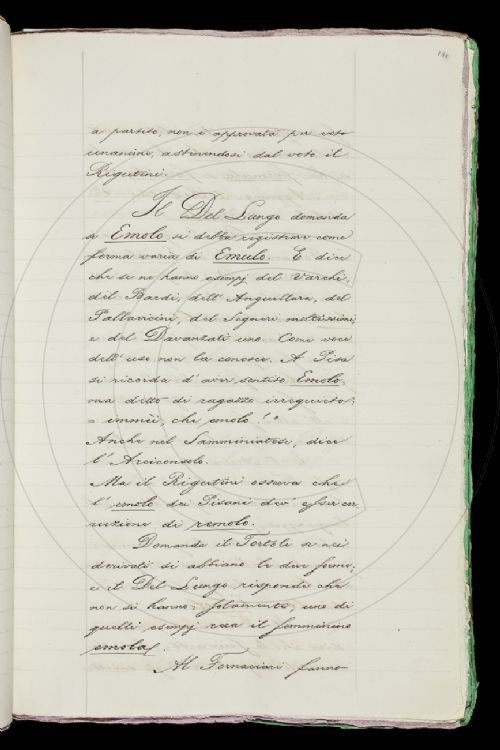 a partito, non è approvata per voto
unanime, astenendosi dal voto il
Rigutini.
Il Del Lungo domanda
se Emolo si debba registrare come
forma varia di Emulo. E dice
che se ne hanno esempj del Varchi,
del Bardi, dell'Anguillara, del
Pallavicini, del Segneri moltissimi,
e del Davanzati uno. Come voce
dell'uso non la conosce. A Pisa
si ricorda d'aver sentito Emolo,
ma detto di ragazzo irrequieto;
che emolo!"
Anche nel Samminiatese, dice
l'Arciconsolo.
Ma il Rigutini osserva che
l'emolo dei Pisani dev'esser cor
ruzione di remolo.
Domanda il Tortoli se nei
derivati si abbiano le due forme;
e il Del Lungo risponde che
non si hanno; solamente, uno di
quelli esempj reca il femminino
emola.
Al Fornaciari fanno